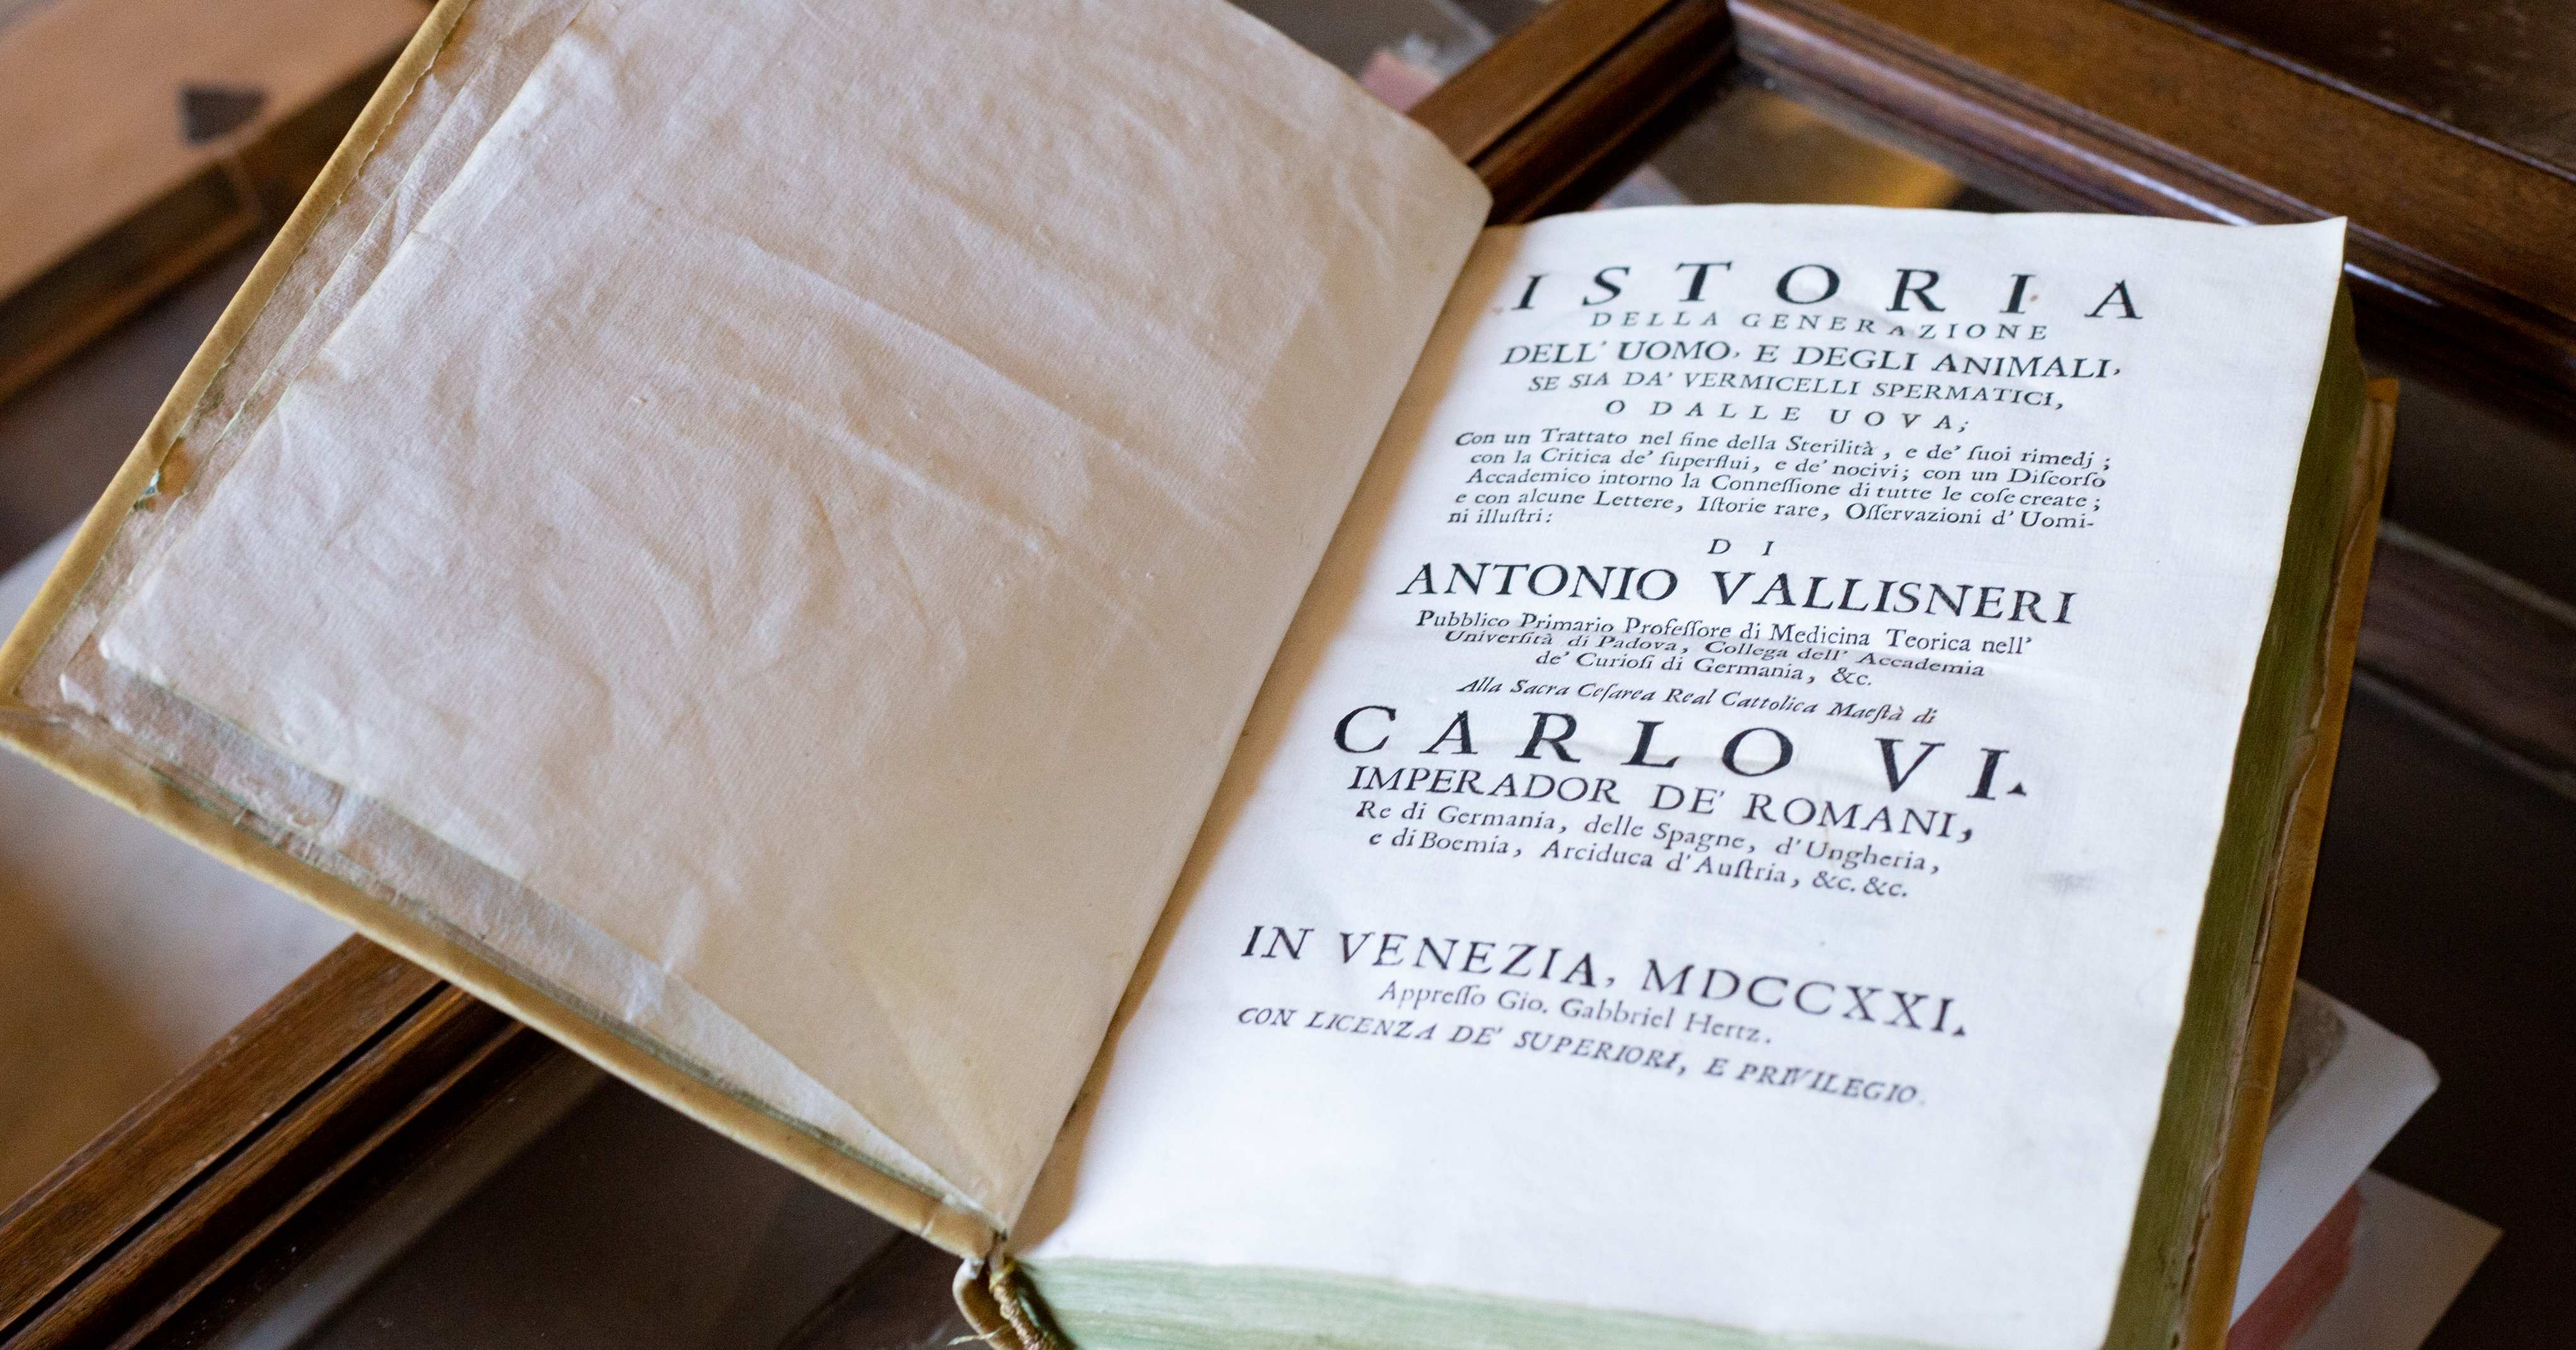 ISTORIA
DELLA GENERAZIONE
DELL' UOMO, E DEGLI ANIMALI,
SE SIA DA' VERMICELLI SPERMATICI,
O DALLE UOVA;
Con un Trattato nel fine della Sterilità, e de' ſuoi rimedj;
con la Critica de' ſuperflui, e de' nocivi; con un Diſcorſo
Accademico intorno la Conneſſione di tutte le coſe create;
e con alcune Lettere, Iſtorie rare, Oſſervazioni d' Uomi-
ni illuſtri:
DI
ANTONIO VALLISNERI
Pubblico Primario Profeſſore di Medicina Teorica nell'
Univerſità di Padova, Collega dell' Accademia
de' Curioſi di Germania, &c.
Alla Sacra Ceſarea Real Cattolica Maeſtà di
CARLO VI.
IMPERADOR DE' ROMANI,
Re di Germania, delle Spagne, d' Ungheria,
e di Boemia, Arciduca d' Auſtria, &c. &c.
IN VENEZIA, MDCCXXI.
Appreſſo Gio. Gabbriel Hertz.
CON LICENZA DE' SUPERIORI, E PRIVILEGIO.